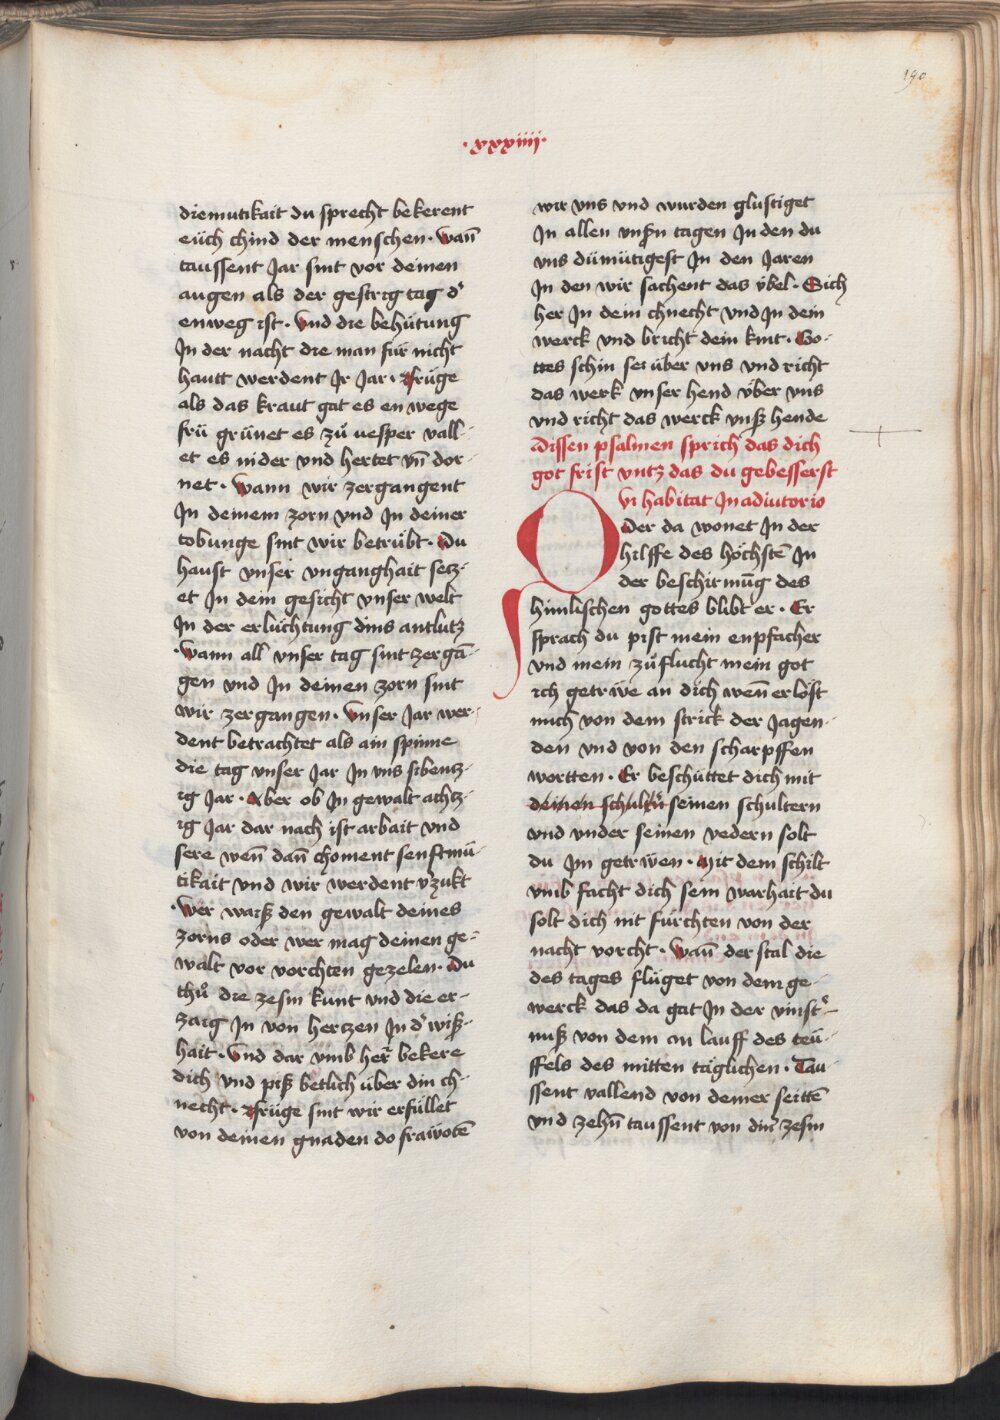 190
·xxxiiii·
diemutikait du sprecht bekerent
eüch chind der menschen · Wan̄
taussent Jar sint vor deinen
augen als der gestrig tag d'
enweg ist · Vnd die behütung
Jn der nacht die man für nicht
hautt werdent Jr Jar · Früge
als das kraut gat es en wege
frü grünet es zů uesper vall-
et es nider vnd hertet vn̄ dor-
net · Wann wir zergangent
Jn deinem zorn vnd Jn deiner
tobunge sint wir betrübt · Du
haust vnser vnganghait secz-
et Jn dein gesicht vnser welt
Jn der erlüchtung dins antlutz
· Wann all vnser tag sint zergā-
gen vnd Jn deinen zorn sint
wir zergangen · Vnser Jar wer-
dent betrachtet als ain spinne
die tag vnser Jar Jn vns sibencz-
ig Jar · Aber ob Jn gewalt achcz-
ig Jar dar nach ist arbait vnd
sere wen̄ dan̄ choment senftmü-
tikait vnd wir werdent v'zukt
· Wer waiß den gewalt deines
zorns oder wer mag deinen ge-
walt vor vorchten gezelen · Du
thů die zesm kunt vnd die er-
zaig Jn von hertzen Jn d' wiß-
hait · Vnd dar vmb her̄ bekere
dich vnd piß betlich über din ch-
necht · Früge sint wir erfüllet
von deinen gnaden do frawotē
wir vns vnd wurden glustiget
Jn allen vnßn tagen Jn den du
vns dümütigest Jn den Jaren
Jn den wir sachent das vbel · Sich
her Jn dein chnecht vnd Jn dein
werck vnd bricht dein kint · Go-
ttes schin sei über vns vnd richt
das werk vnser hend vber vns
vnd richt das werck vnß hende
Dissen psalmen sprich das dich
got frist vntz das du gebesserst
Qvi habitat Jn adiutorio
Der da wonet Jn der
hilffe des höchstē Jn
der beschirmūg des
himlischen gottes blibt er · Er
sprach du pist mein enpfacher
vnd mein zůflucht mein got
ich getrwe an dich wen̄ er löst
mich von dem strick der Jagen-
den vnd von den scharpffen
wortten · Er beschüttet dich mit
deinen schultn seinen schultern
vnd vnder seinen vedern solt
du Jm getrwen · Mit dem schilt
vmb facht dich sein warhait du
solt dich nit fürchten von der
nacht vorcht · Wan̄ der stal die
des tages flüget von dem ge-
werck das da gat Jn der vinst'-
nuß von dem an lauff des teü-
ffels des mitten täglichen · Tau-
ssent vallend von deiner seittē
vnd zehn̄ taussent von din' zesm